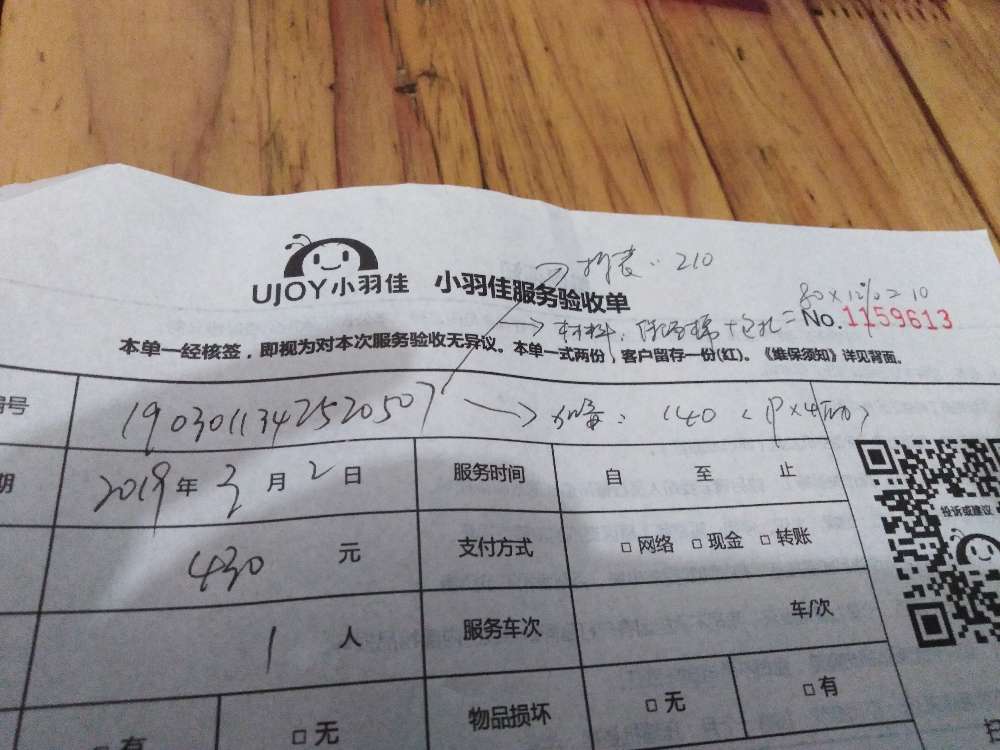 拆装：210
UJOY小羽佳 小羽佳服务验收单
80×12%=10
材料：保温棉+包扎=
No.1159613
本单一经核签，即视为对本次服务验收无异议。本单一式两份，客户留存一份(红)。《维保须知》详见背面。
编号 1903011342520507 加氟：140
期 2019年3月2日 服务时间 自 至 止
投诉或建议
430 元 支付方式 □网络 □现金 □转账
1 人 服务车次 车/次
□有 □无 物品损坏 □无 □有